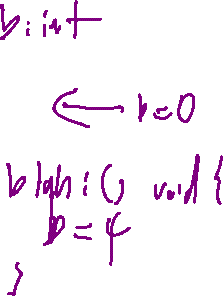 b: int
b=0
blah: () void {
b=4
}